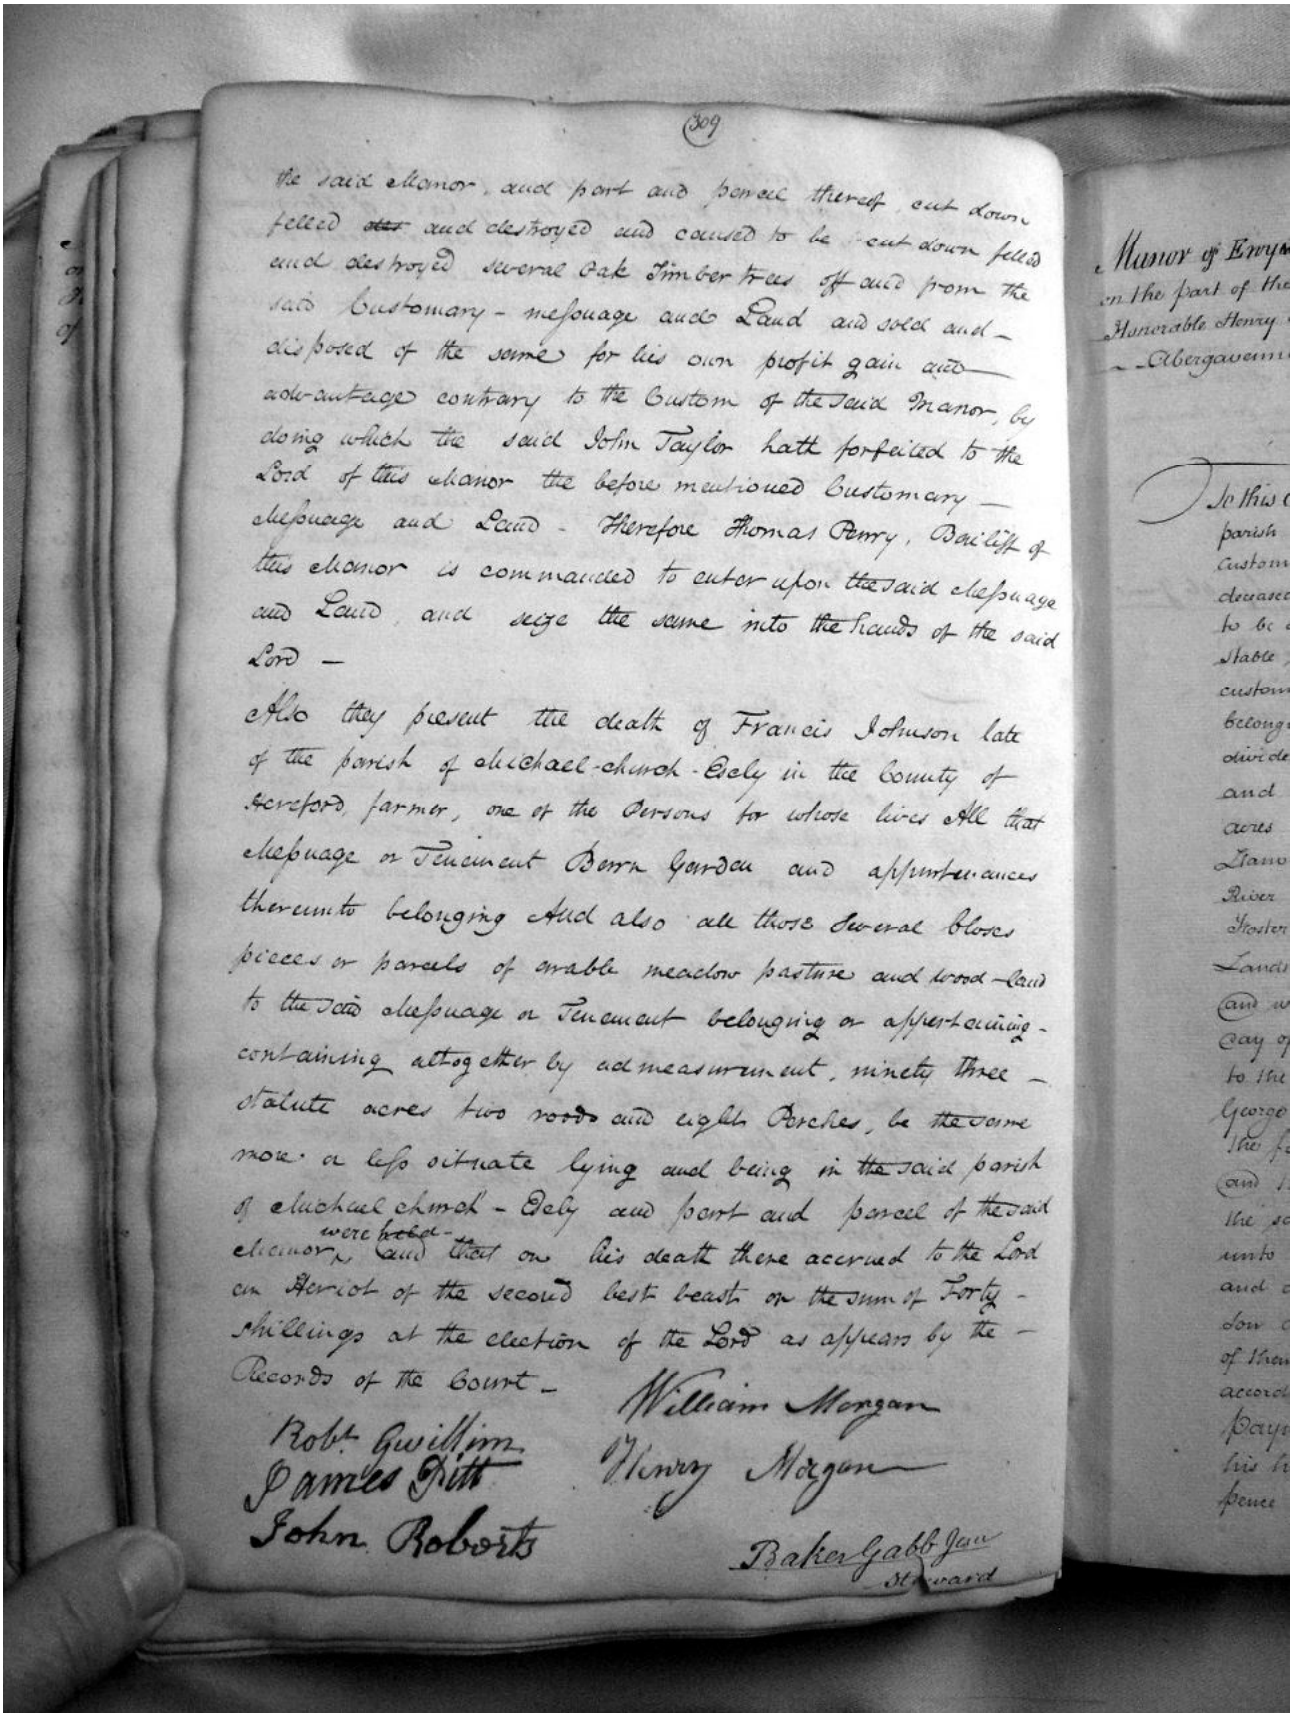 309
the said Manor, and part and parcel thereof, cut down
felled and destroyed and caused to be cut down felled
and destroyed several Oak Timber trees off and from the
said Customary - messuage and Land and sold and -
disposed of the same for his own profit gain and
advantage contrary to the Custom of the said Manor, by
doing which the said John Taylor hath forfeited to the
Lord of this Manor the before mentioned Customary -
Messuage and Land - Therefore Thomas Penry, Bailiff of
this Manor is commanded to enter upon the said Messuage
and Land, and seize the same into the hands of the said
Lord -
Also they present the death of Francis Johnson late
of the parish of Michael-church-Escly in the County of
Hereford, farmer, one of the Persons for whose lives All that
Messuage or Tenement Barn Garden and appurtenances
thereunto belonging And also all those Several Closes
pieces or parcels of arable meadow pasture and wood-land
to the said Messuage or Tenement belonging or appertaining -
containing altogether by admeasurement, ninety three -
statute acres two roods and eight Perches, be the same
more or less situate lying and being in the said parish
of Michael church - Escly and part and parcel of the said
were held -
Manor, and that on his death there accrued to the Lord
an Heriot of the second best beast or the sum of Forty -
shillings at the election of the Lord as appears by the -
Records of the Court -
William Morgan
Robt. Gwillim
James Pitt
Henry Morgan
John Roberts
Baker Gabb Jun
Steward
Manor of Ewyas
on the part of the
Honorable Henry
Abergavenny
To this
parish
custom
deceased
to be
stable
custom
belong
divide
and
acres
Llan
River
Foster
Lands
and
day of
to the
George
the
and
the
unto
and
of them
accord
his
pence